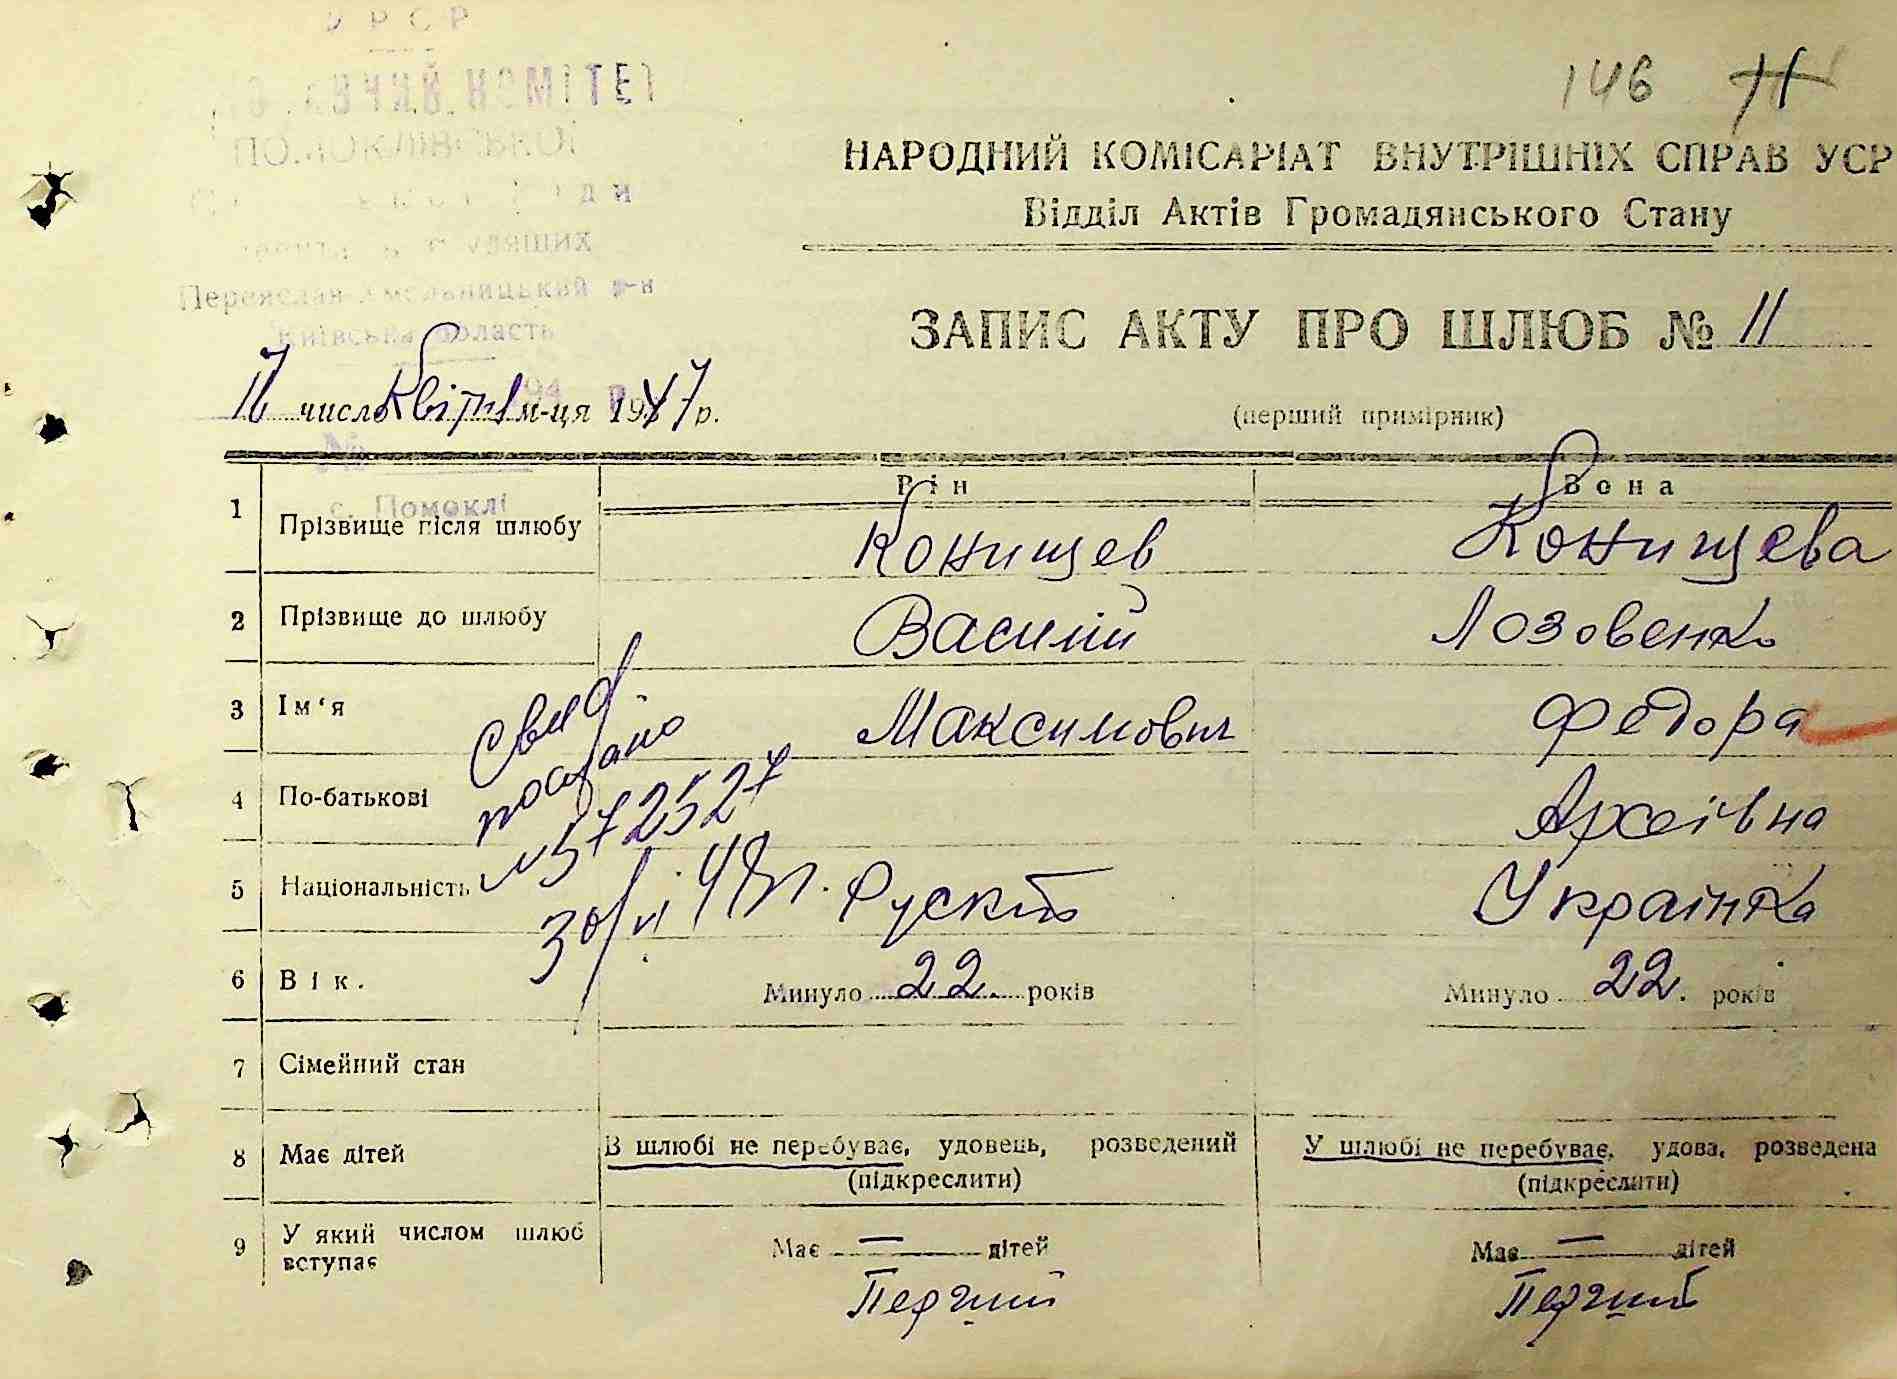 УРСР
КОМІТЕТ
Переяслав-Хмельницький р-н
Київська область
с. Помоклі
146
НАРОДНИЙ КОМІСАРІАТ ВНУТРІШНІХ СПРАВ УСР
Відділ Актів Громадянського Стану
ЗАПИС АКТУ ПРО ШЛЮБ № 11
число Квітня м-ця 1947 р.
(перший примірник)
Він Вона
1 Прізвище після шлюбу Конищев Конищева
2 Прізвище до шлюбу Василий Лозовенко
3 Ім'я Максимович Федора
4 По-батькові
5 Національність Руский Українка
Свид.
послано
30/VI 48 р.
6 Вік. Минуло 22. років Минуло 22. років
7 Сімейний стан
8 Має дітей В шлюбі не перебуває, удовець, розведений У шлюбі не перебуває, удова, розведена
(підкреслити) (підкреслити)
9 У який числом шлюб вступає Має — дітей Має — дітей
Перший Перший